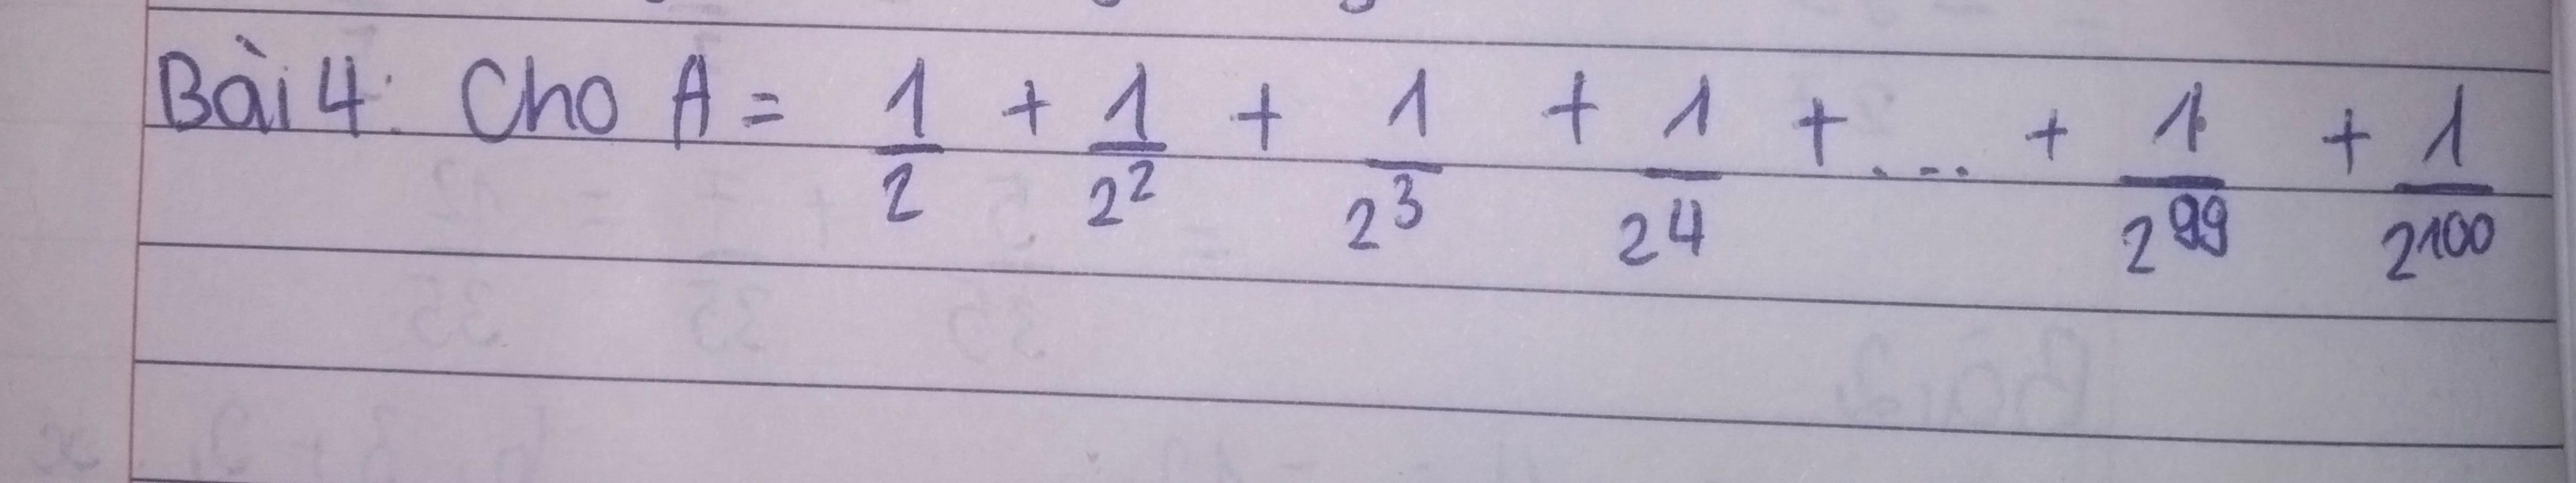 Bài 4: Cho A = 1/2 + 1/2² + 1/2³ + 1/2⁴ + .... + 1/2⁹⁹ + 1/2¹⁰⁰